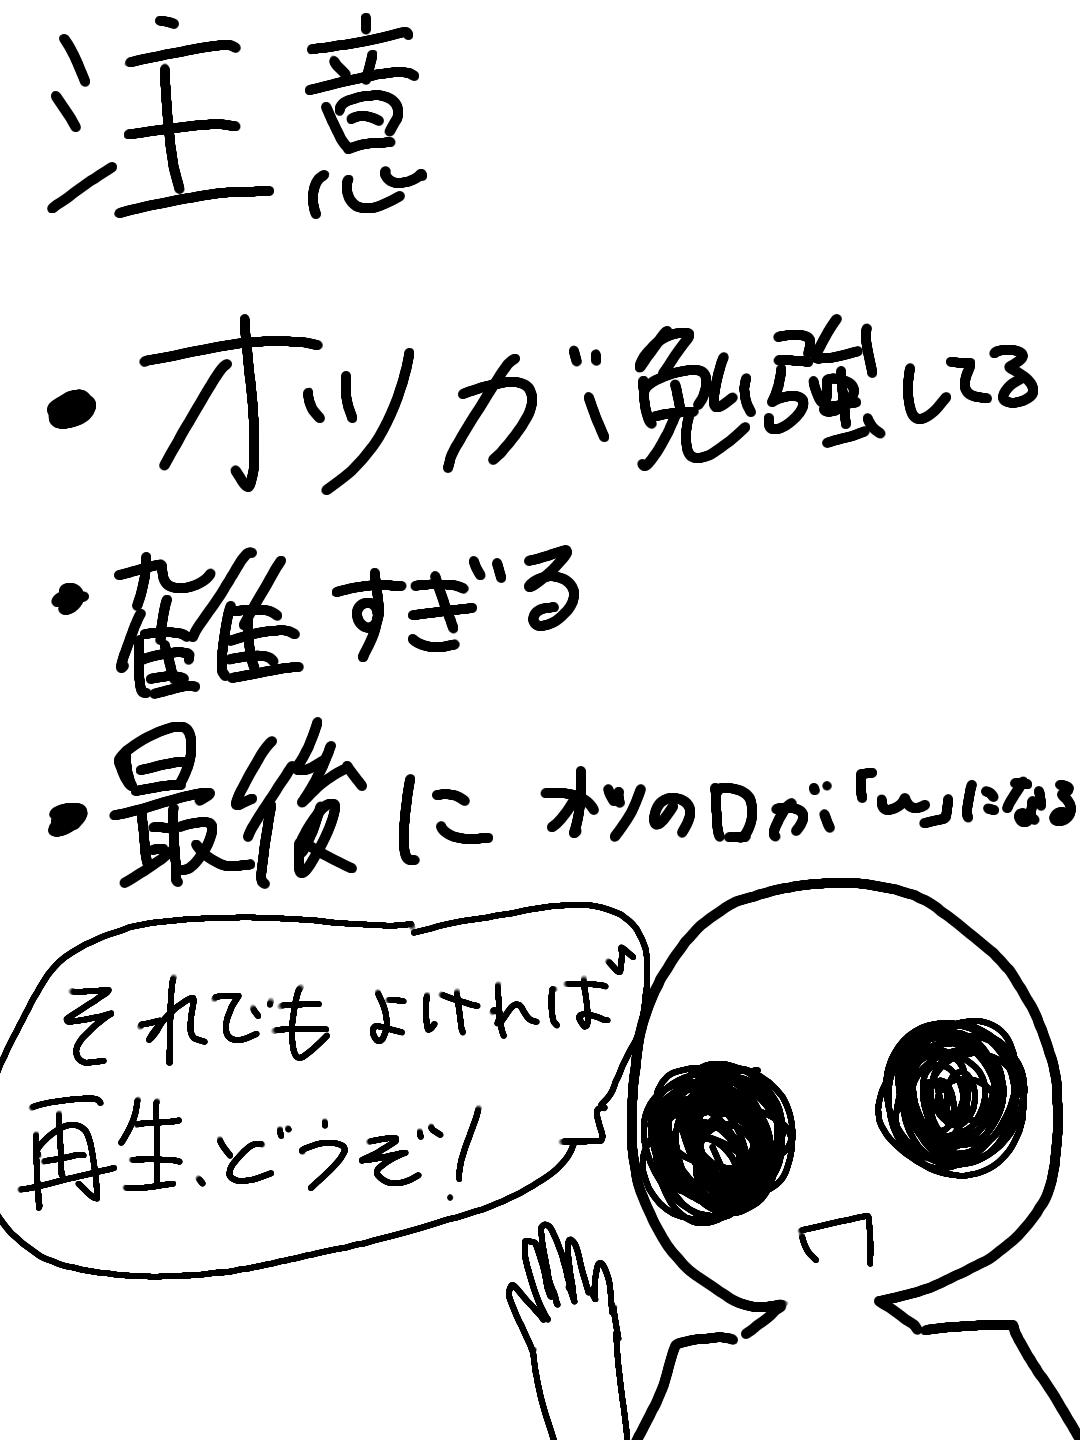 注意
・オツが勉強してる
・雑すぎる
・最後にオツの口が「〜」になる
それでもよければ
再生、どうぞ!